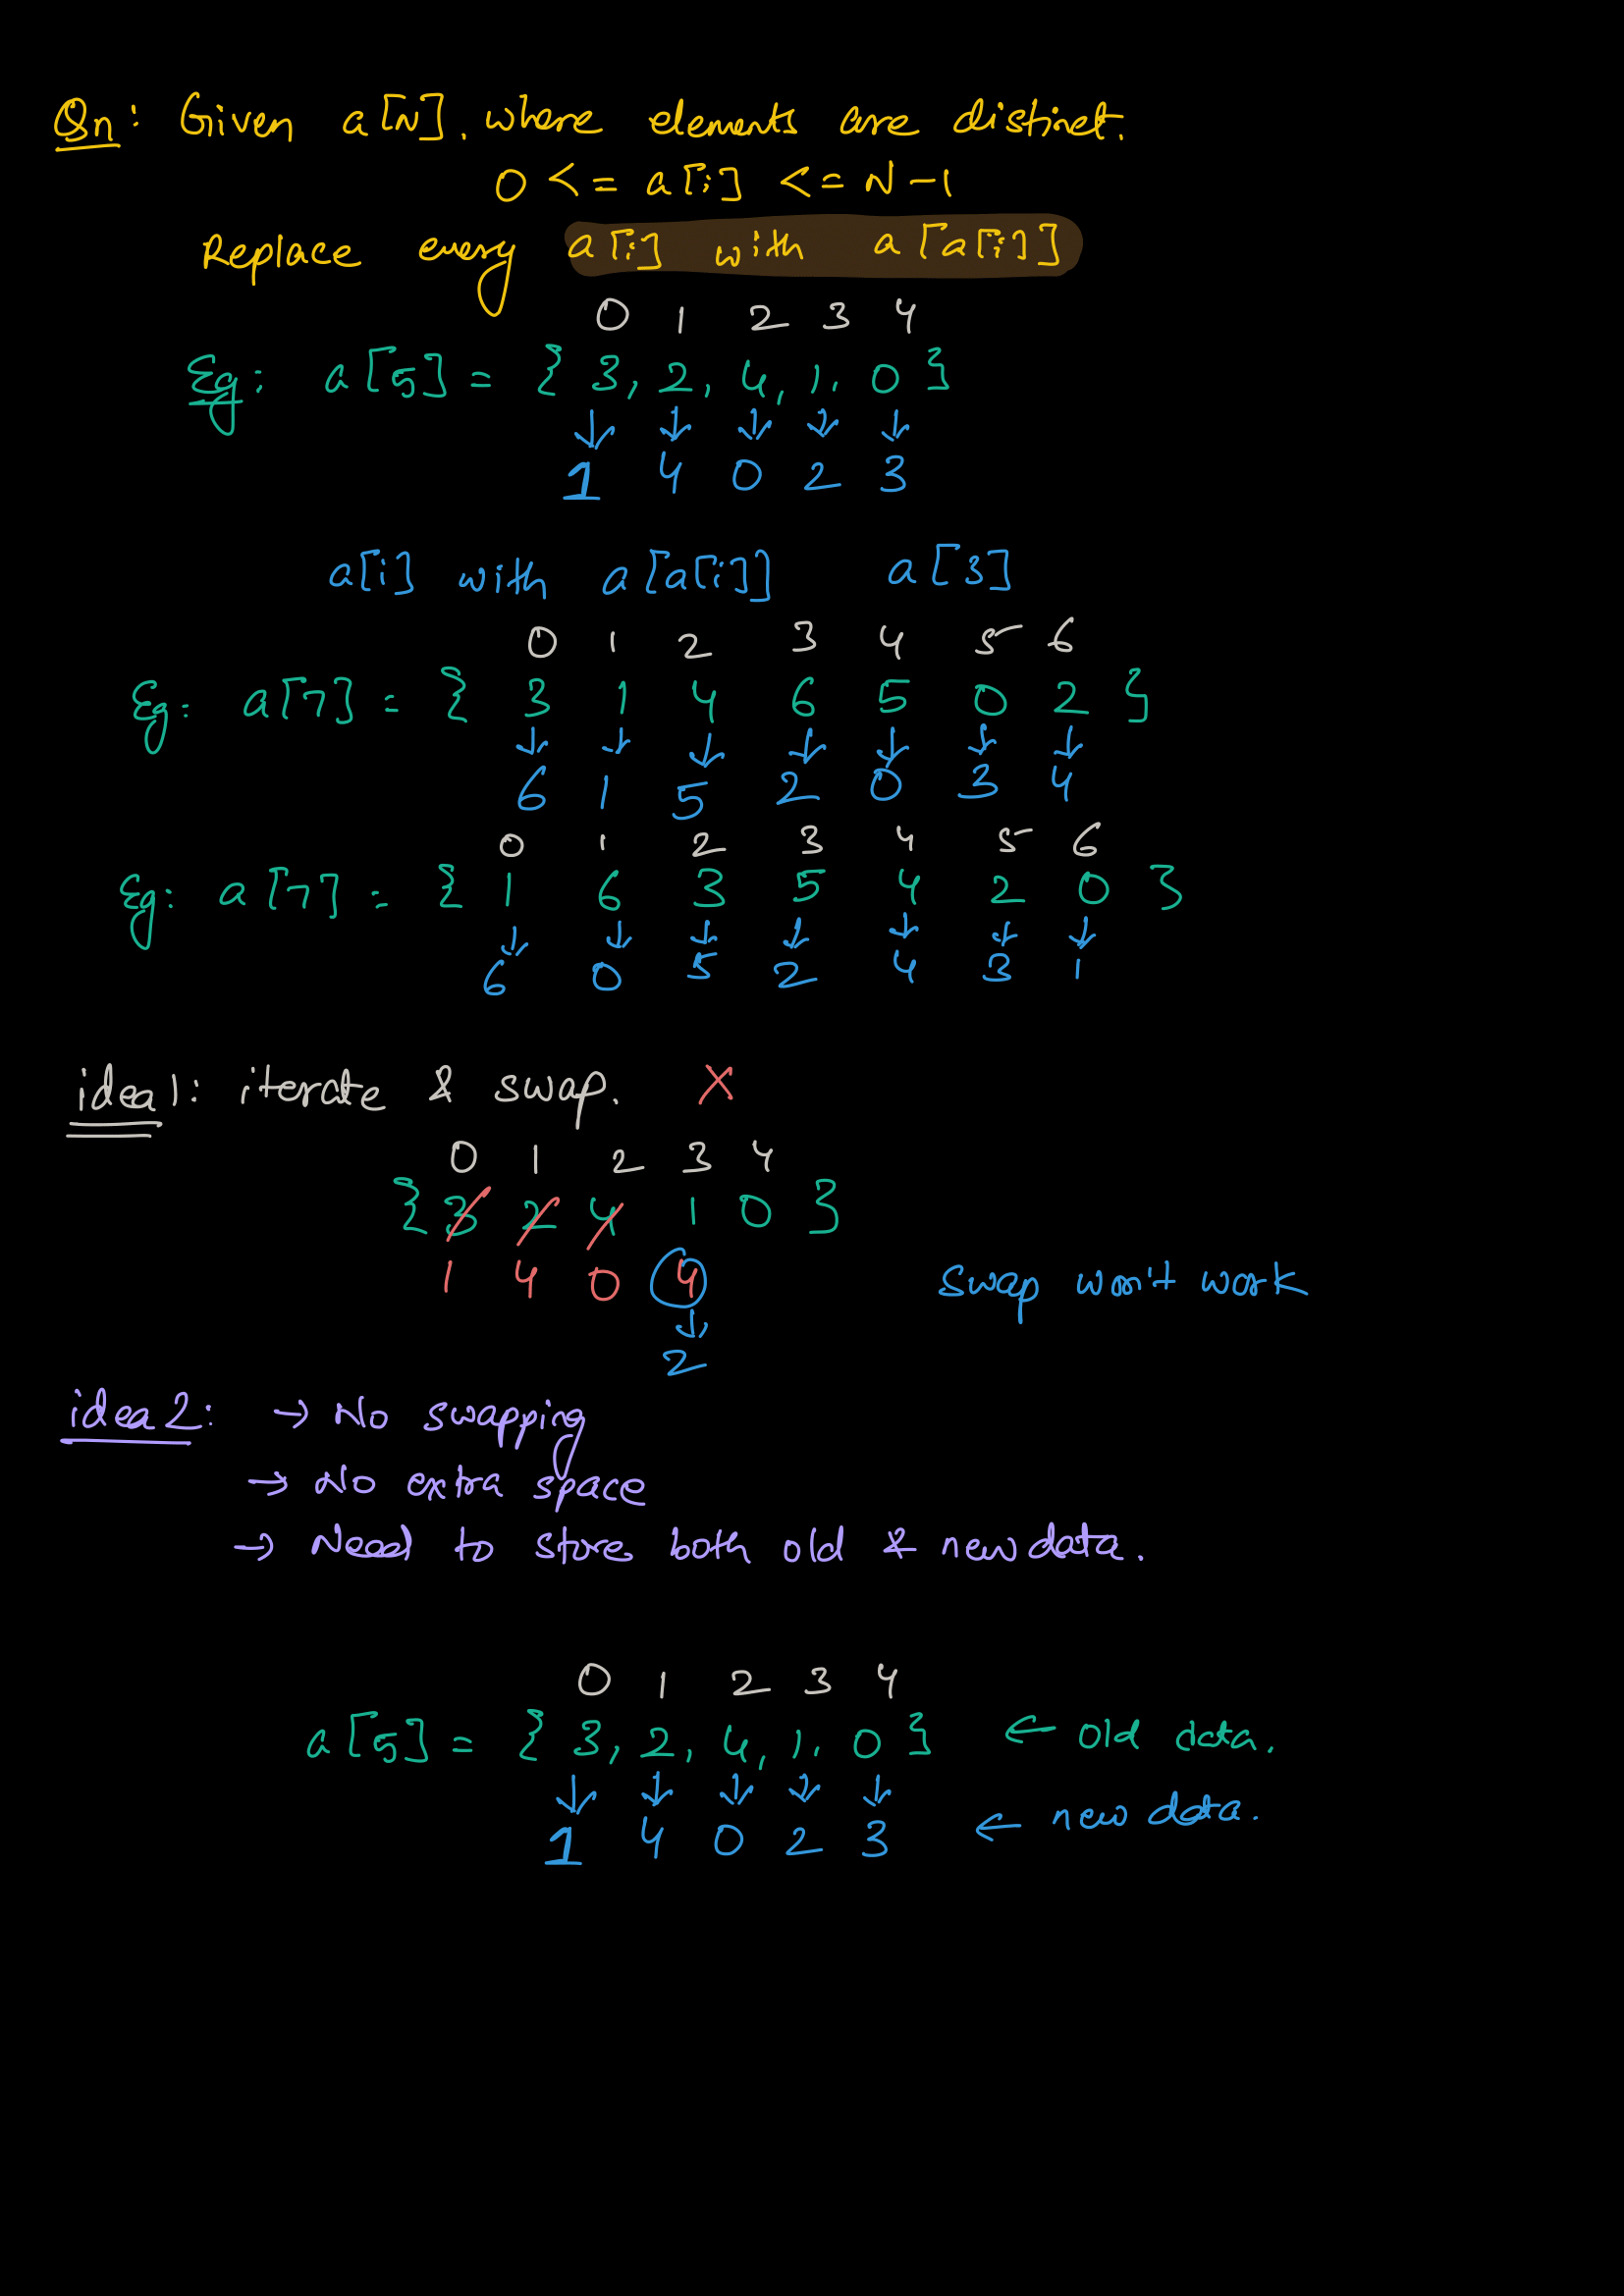 Qn: Given a[N], where elements are distinct.
0 <= a[i] <= N-1
Replace every a[i] with a[a[i]]
0 1 2 3 4
Eg: a[5] = { 3, 2, 4, 1, 0 }
↓ ↓ ↓ ↓ ↓
1 4 0 2 3
a[i] with a[a[i]] a[3]
0 1 2 3 4 5 6
Eg: a[7] = { 3 1 4 6 5 0 2 }
↓ ↓ ↓ ↓ ↓ ↓ ↓
6 1 5 2 0 3 4
0 1 2 3 4 5 6
Eg: a[7] = { 1 6 3 5 4 2 0 }
↓ ↓ ↓ ↓ ↓ ↓ ↓
6 0 5 2 4 3 1
idea1: iterate & swap. X
0 1 2 3 4
{ 3 2 4 1 0 }
1 4 0 4 swap won't work
↓
2
idea2: → No swapping
→ No extra space
→ Need to store both old & new data.
0 1 2 3 4
a[5] = { 3, 2, 4, 1, 0 } ← old data.
↓ ↓ ↓ ↓ ↓
1 4 0 2 3 ← new data.